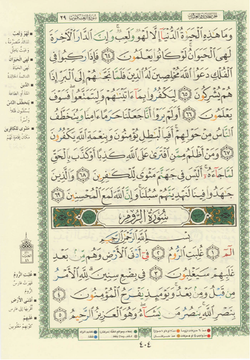 وَمَا هَٰذِهِ الْحَيَاةُ الدُّنْيَا إِلَّا لَهْوٌ وَلَعِبٌ وَإِنَّ الدَّارَ الْآخِرَةَ
لَهِيَ الْحَيَوَانُ لَوْ كَانُوا يَعْلَمُونَ ٦٤ فَإِذَا رَكِبُوا فِي
الْفُلْكِ دَعَوُا اللَّهَ مُخْلِصِينَ لَهُ الدِّينَ فَلَمَّا نَجَّاهُمْ إِلَى الْبَرِّ إِذَا
هُمْ يُشْرِكُونَ ٦٥ لِيَكْفُرُوا بِمَا آتَيْنَاهُمْ وَلِيَتَمَتَّعُوا فَسَوْفَ
يَعْلَمُونَ ٦٦ أَوَلَمْ يَرَوْا أَنَّا جَعَلْنَا حَرَمًا آمِنًا وَيُتَخَطَّفُ
النَّاسُ مِنْ حَوْلِهِمْ أَفَبِالْبَاطِلِ يُؤْمِنُونَ وَبِنِعْمَةِ اللَّهِ يَكْفُرُونَ
٦٧ وَمَنْ أَظْلَمُ مِمَّنِ افْتَرَىٰ عَلَى اللَّهِ كَذِبًا أَوْ كَذَّبَ بِالْحَقِّ
لَمَّا جَاءَهُ أَلَيْسَ فِي جَهَنَّمَ مَثْوًى لِلْكَافِرِينَ ٦٨ وَالَّذِينَ
جَاهَدُوا فِينَا لَنَهْدِيَنَّهُمْ سُبُلَنَا وَإِنَّ اللَّهَ لَمَعَ الْمُحْسِنِينَ ٦٩
سُورَةُ الرُّومِ
بِسْمِ اللَّهِ الرَّحْمَٰنِ الرَّحِيمِ
الم ١ غُلِبَتِ الرُّومُ ٢ فِي أَدْنَى الْأَرْضِ وَهُمْ مِنْ بَعْدِ
غَلَبِهِمْ سَيَغْلِبُونَ ٣ فِي بِضْعِ سِنِينَ لِلَّهِ الْأَمْرُ
مِنْ قَبْلُ وَمِنْ بَعْدُ وَيَوْمَئِذٍ يَفْرَحُ الْمُؤْمِنُونَ ٤
بِنَصْرِ اللَّهِ يَنْصُرُ مَنْ يَشَاءُ وَهُوَ الْعَزِيزُ الرَّحِيمُ ٥
٤٠٤